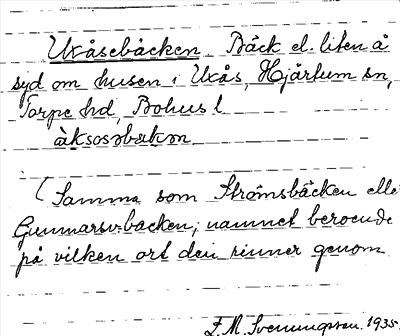 Uxåsebäcken. Bäck el. liten å
syd om husen i Uxås, Hjärtum sn,
Torpe hd, Bohus l
(Samma som Strömsbäcken elle
Gunnarsv.backen; namnet beroende
på vilken ort den rinner genom
E.M. Svenungsson. 1935.